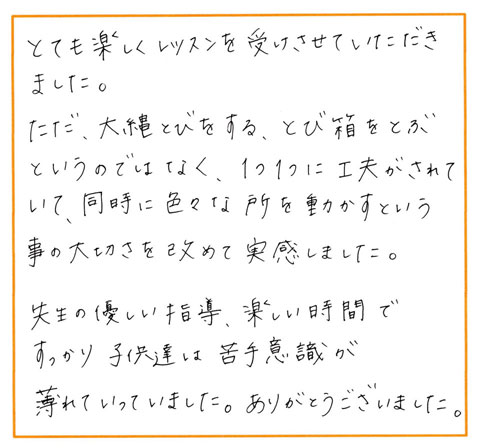 とても楽しくレッスンを受けさせていただき
ました。
ただ、大縄とびをする、とび箱をとぶ
というのではなく、1つ1つに工夫がされて
いて、同時に色々な所を動かすという
事の大切さを改めて実感しました。
先生の優しい指導、楽しい時間で
すっかり子供達は苦手意識が
薄れていっていました。ありがとうございました。